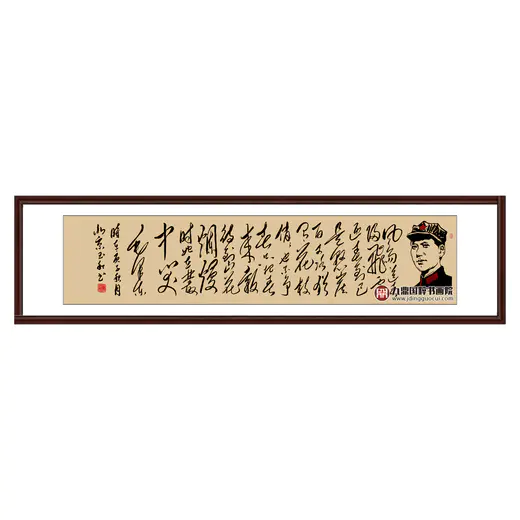 风雨送春
归飞雪
迎春到已
是悬崖
百丈冰犹
有花枝
俏俏也不争
春只把春
来报
待到山花
烂漫
时她在丛
中笑
毛泽东
时年庚子秋月
北京
书
九鼎国粹书画院
www.jdingguocui.com